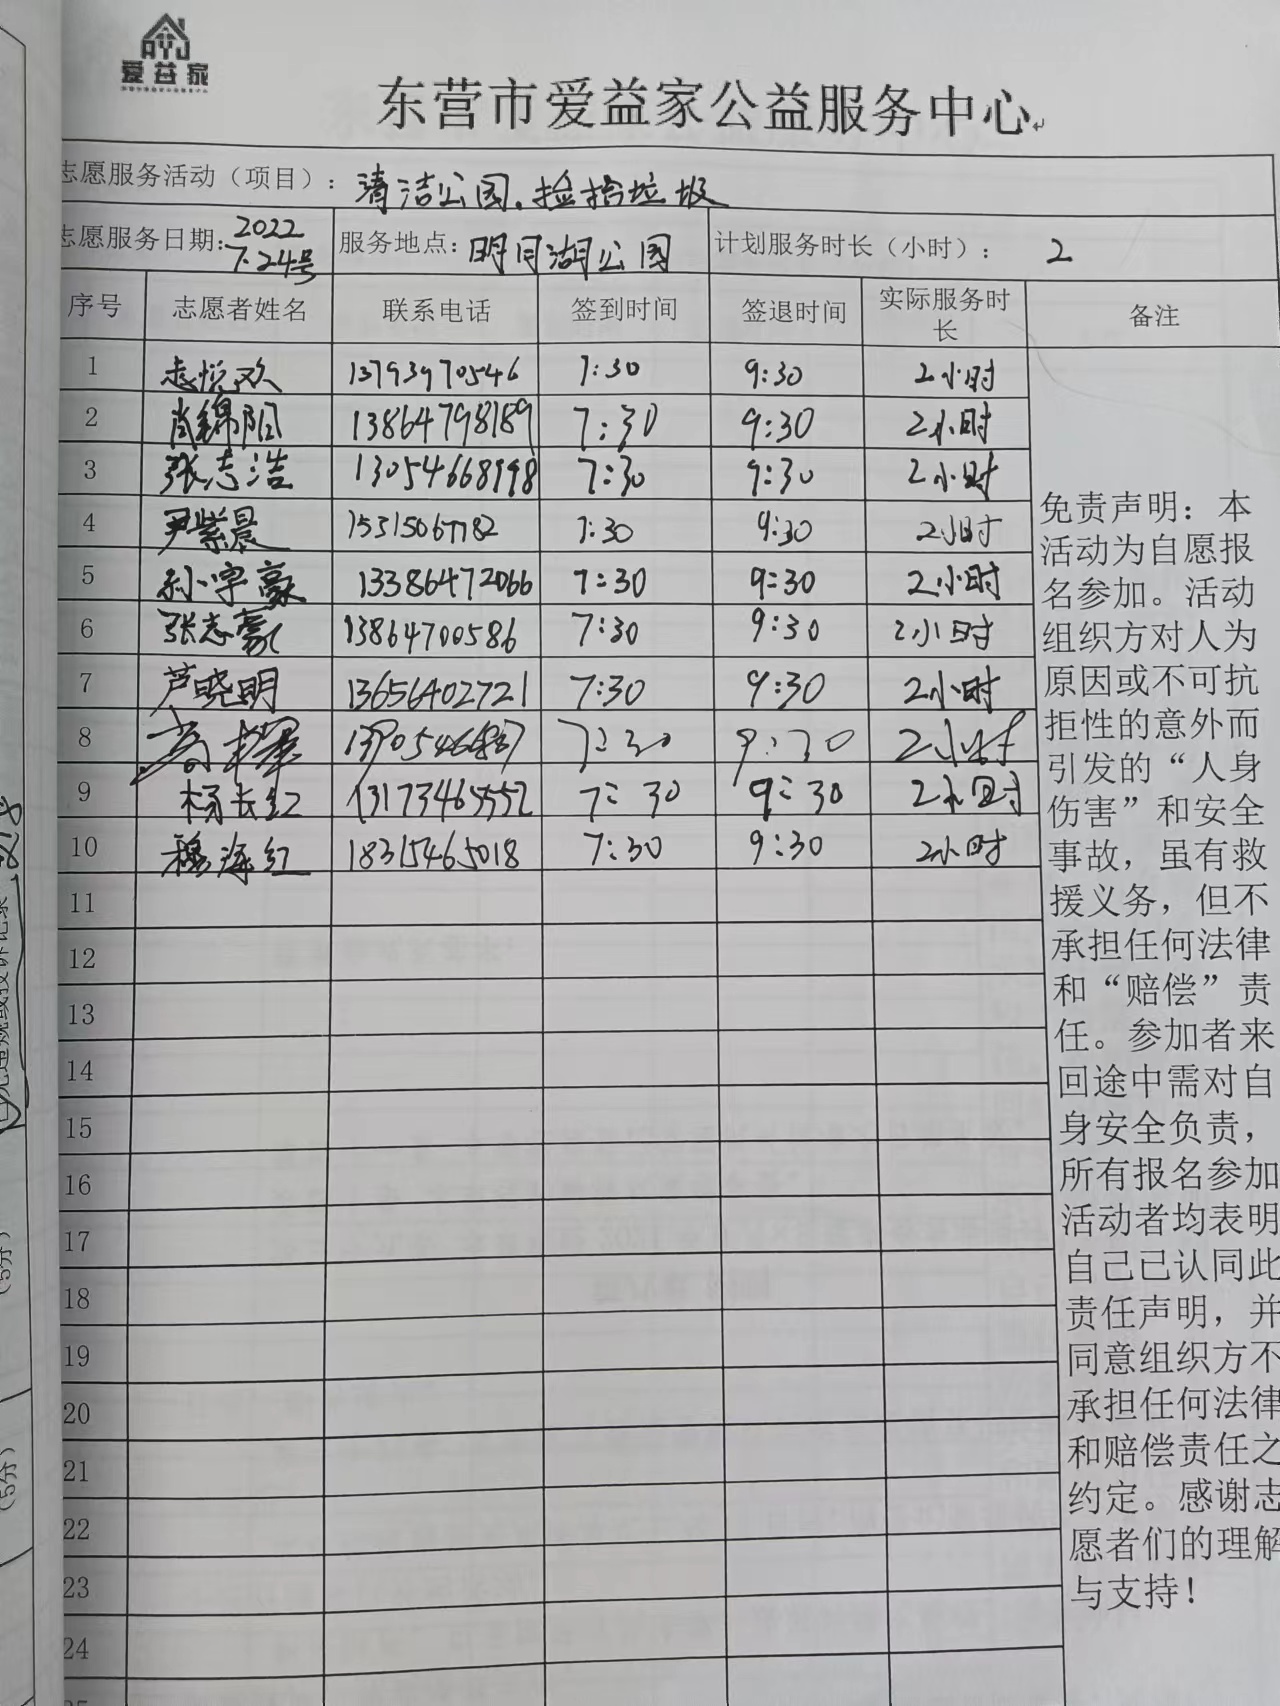 AYJ
爱益家
东营市爱益家公益服务中心
志愿服务活动（项目）： 清洁公园、捡拾垃圾
志愿服务日期: 2022 7.24号 服务地点: 明月湖公园 计划服务时长（小时）: 2
序号 志愿者姓名 联系电话 签到时间 签退时间 实际服务时长 备注
1 13793970546 7:30 9:30 2小时
2 肖锦阳 13864798189 7:30 9:30 2小时
3 张志浩 13054668998 7:30 9:30 2小时
4 尹紫晨 15315067782 7:30 9:30 2小时
5 孙宇豪 13386472066 7:30 9:30 2小时
6 张志豪 13864700586 7:30 9:30 2小时
7 芦晓明 13656402721 7:30 9:30 2小时
8 7:30 9:30 2小时
9 杨长红 13173465552 7:30 9:30 2小时
10 穆海红 18315465018 7:30 9:30 2小时
11
12
13
14
15
16
17
18
19
20
21
22
23
24
免责声明：本
活动为自愿报
名参加。活动
组织方对人为
原因或不可抗
拒性的意外而
引发的“人身
伤害”和安全
事故，虽有救
援义务，但不
承担任何法律
和“赔偿”责
任。参加者来
回途中需对自
身安全负责，
所有报名参加
活动者均表明
自己已认同此
责任声明，并
同意组织方不
承担任何法律
和赔偿责任之
约定。感谢志
愿者们的理解
与支持！
（5分）
（5分）